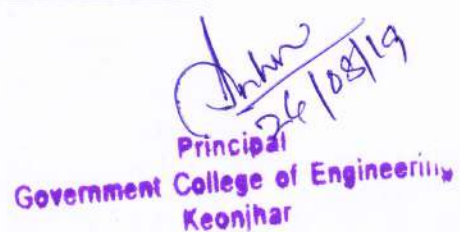 26/08/19
Principal
Government College of Engineering
Keonjhar